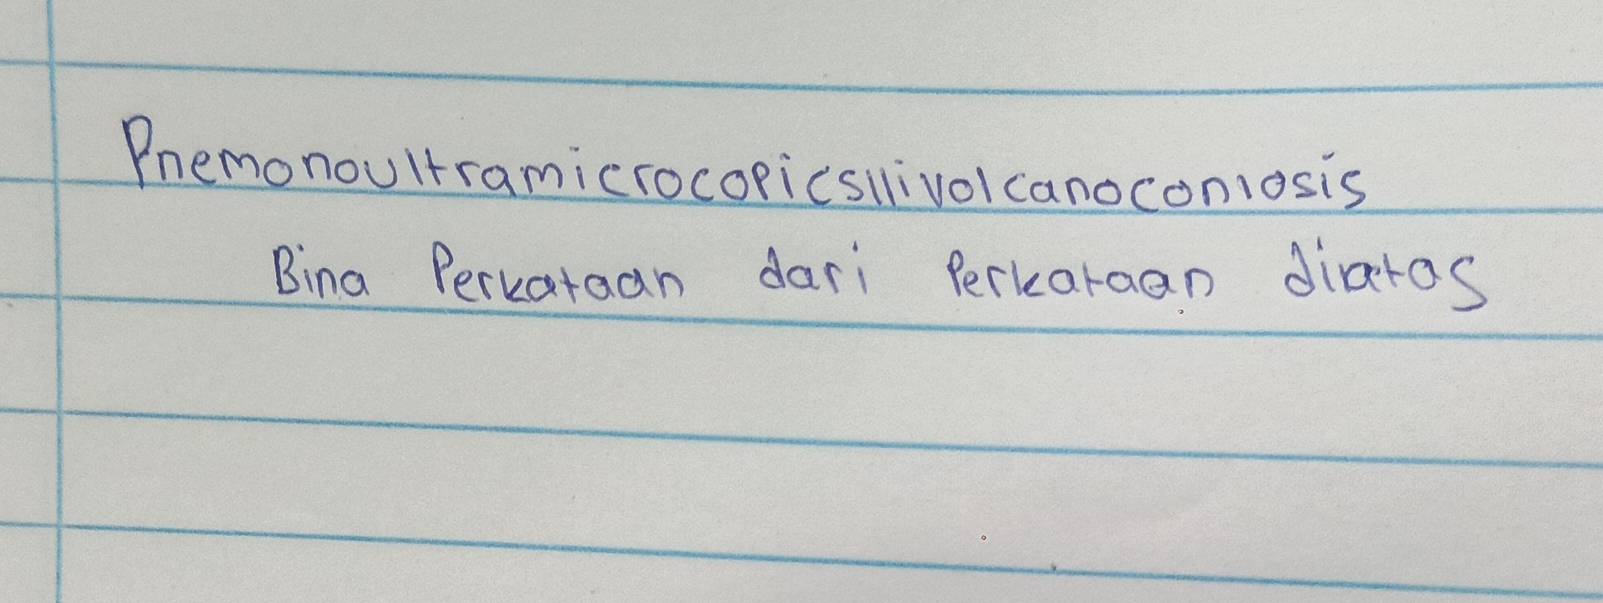 Pnemonoultramicrocopicsllivolcanoconiosis
Bina Perkataan dari Perkataan diatas